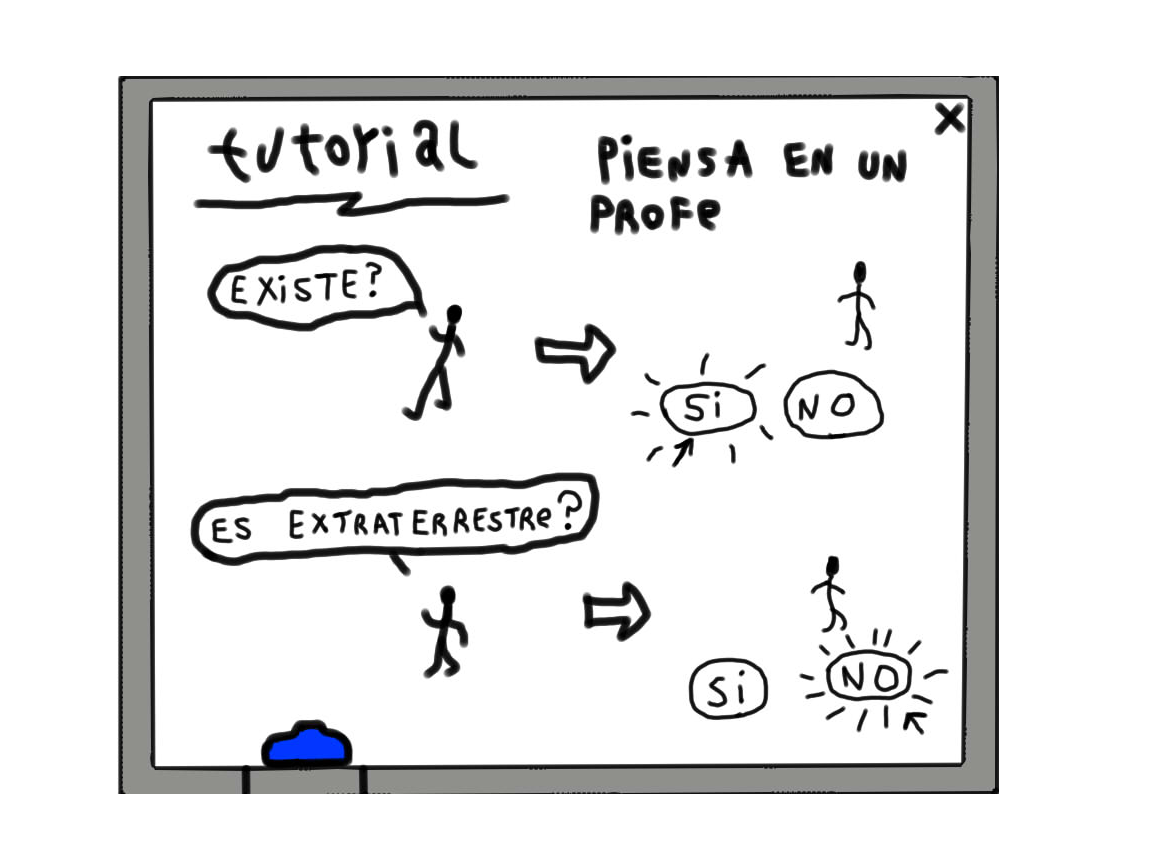 tutorial
PiENSA EN UN
PROFe
EXiSTE?
Si NO
ES EXTRATERRESTRe?
Si NO
X